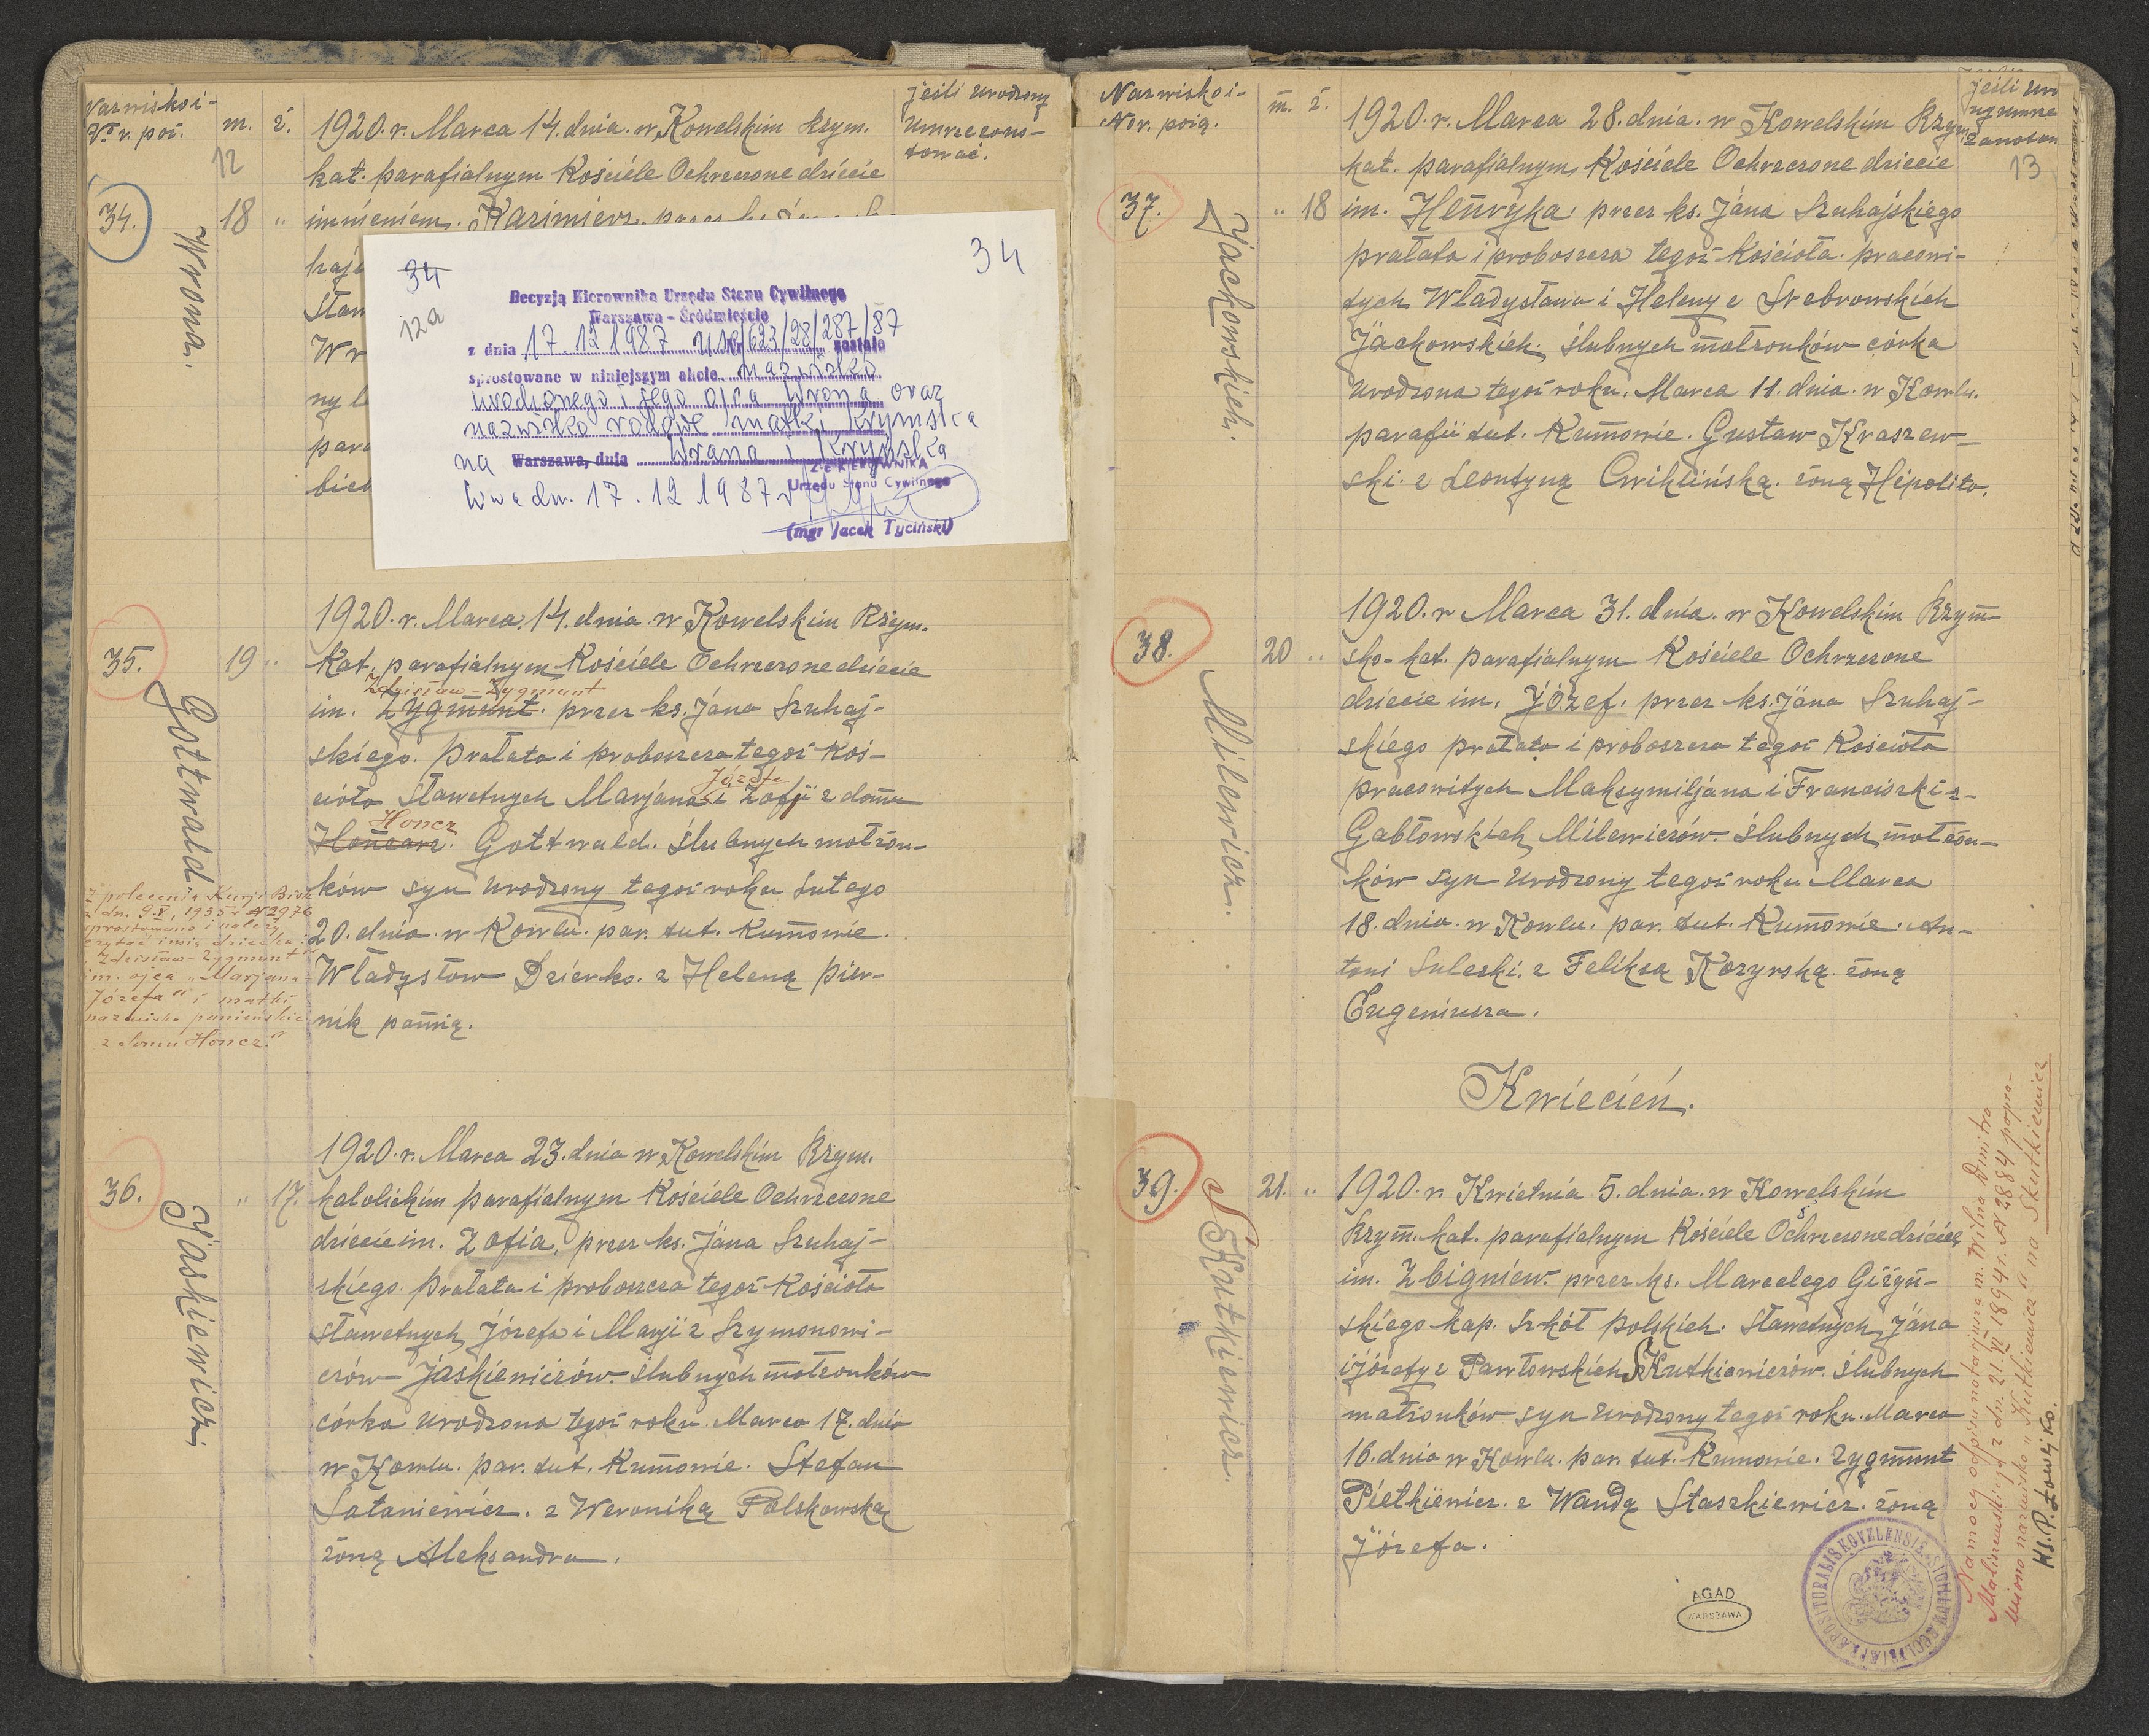 Nazwisko i
Nr. r. poi.
m.
ż.
12
1920. r. Marca 14. dnia. w Kowelskim Rzym.
jeśli urodzony
umrze zano-
tować.
kat. parafialnym Kościele Ochrzczone dziécie
34.
Wrona.
18 "
imnieniem. Kazimierz. przez ks. Jana
haj
Sław
Wr
ny
para
34
34
12a
Decyzją Kierownika Urzędu Stanu Cywilnego
Warszawa - Śródmieście
z dnia 17.12 1987 zostało
sprostowane w niniejszym akcie nazwisko
urodzonego i jego ojca Wrona oraz
nazwisko rodowe matki Krymska
na Warszawa, dnia Wrana i Krypska
Z-ca KIEROWNIKA
Urzędu Stanu Cywilnego
W-wa dn. 17.12 1987 r
(mgr Jacek Tyciński)
1920. r. Marca. 14. dnia. w Kowelskim Rzym.
35.
Gottwald
19 "
Kat. parafialnym Kościele Ochrzczone dziécie
Zdzisław-Zygmunt
im. Zygmunt. przez ks. Jána Szuhaj-
skiego. Prałata i proboszcza tegoż Koś-
Józefa
cioła Sławetnych Marjána i Zofji z domu
Honcz
Honcarz. Gottwald. Ślubnych małżon-
ków syn urodzony tegoż roku Lutego
20. dnia. w Kowlu. par. tut. Kumowie.
Władysław Dzienko. z Heleną Piw-
nik panną.
z polecenia Kurji Bisk
z dn. 9.V, 1935 r. N 2976
sprostowano i należy
czytać imię dziecka:
"Zdzisław-Zygmunt"
im. ojca "Marjana
Józefa" i matki
nazwisko panieńskie
z domu Honcz."
1920. r. Marca 23. dnia w Kowelskim Rzym.
36.
Jaskiewicz.
" 17.
katolickim parafialnym Kościele Ochrzczone
dziecie im. Zofia, przez ks. Jána Szuhaj-
skiego. Prałata i proboszcza tegoż Kościoła
Sławetnych Józefa i Marji z Szymonowi-
czów Jaskiewiczów. ślubnych małżonków
córka urodzona tegoż roku. Marca 17. dnia
w Kowlu. par. tut. Kumowie. Stefan
Sataniewicz. z Weroniką Polskowską
żoną Aleksandra.
Nazwisko i-
Nor. poią.
m. ż.
1920. r. Marca 28. dnia. w Kowelskim Rzym
jeśli uro
ny umrze
zanotow
13
kat. parafialnym Kościele Ochrzczone dziecie
37.
Jackowskich.
" 18
im. Henryka. przez ks. Jána Szuhajskiego
prałata i proboszcza tegoż Kościoła. pracowi-
tych Władysława i Heleny z Srebrowskich
Jáckowskich. ślubnych małżonków córka
urodzona tegoż roku. Marca 11. dnia. w Kowlu.
parafii tut. Kumowie. Gustaw Kraszew-
ski. z Leontyną Cwiklińską. żoną Hipolita.
1920. r Marca 31. dnia. w Kowelskim Rzym-
38.
Milewicz.
20 "
sko-kat. parafialnym Kościele Ochrzczone
dziecie im. Józef. przez ks. Jána Szuhaj-
skiego prałata i proboszcza tegoż Kościoła
pracowitych Maksymiljána i Franciszki z-
Gabłowskich Milewiczów. Ślubnych małżon-
ków syn urodzony tegoż roku Marca
18. dnia. w Kowlu. par. tut. Kumowie. An-
toni Suleski. z Feliksą Kozyrską. żoną
Eugeniusza.
Kwiecień.
39.
Skutkiewicz.
21. "
1920. r. Kwietnia 5. dnia. w Kowelskim
Rzym. kat. parafialnym Kościele Ochrzczone dziécię
im. Zbigniew. przez ks. Marcelego Giżyń-
skiego kap. szkół Polskich. Sławetnych Jána
i Józefy z Pawłowskich Skutkiewiczów. ślubnych
małżonków syn urodzony tegoż roku. Marca
16. dnia w Kowlu. par. tut. Kumowie. Zygmunt
Pietkiewicz. z Wandą Staszkiewicz. żoną
Józefa.
Na mocy odpisu notarjusza m. Wilna Dmitra
Malinowskiego z dn. 21.VI 1894 r. N 2884 popra-
wiono nazwisko "Kutkiewicz" na Skutkiewicz
Ks. P.
AGAD
WARSZAWA